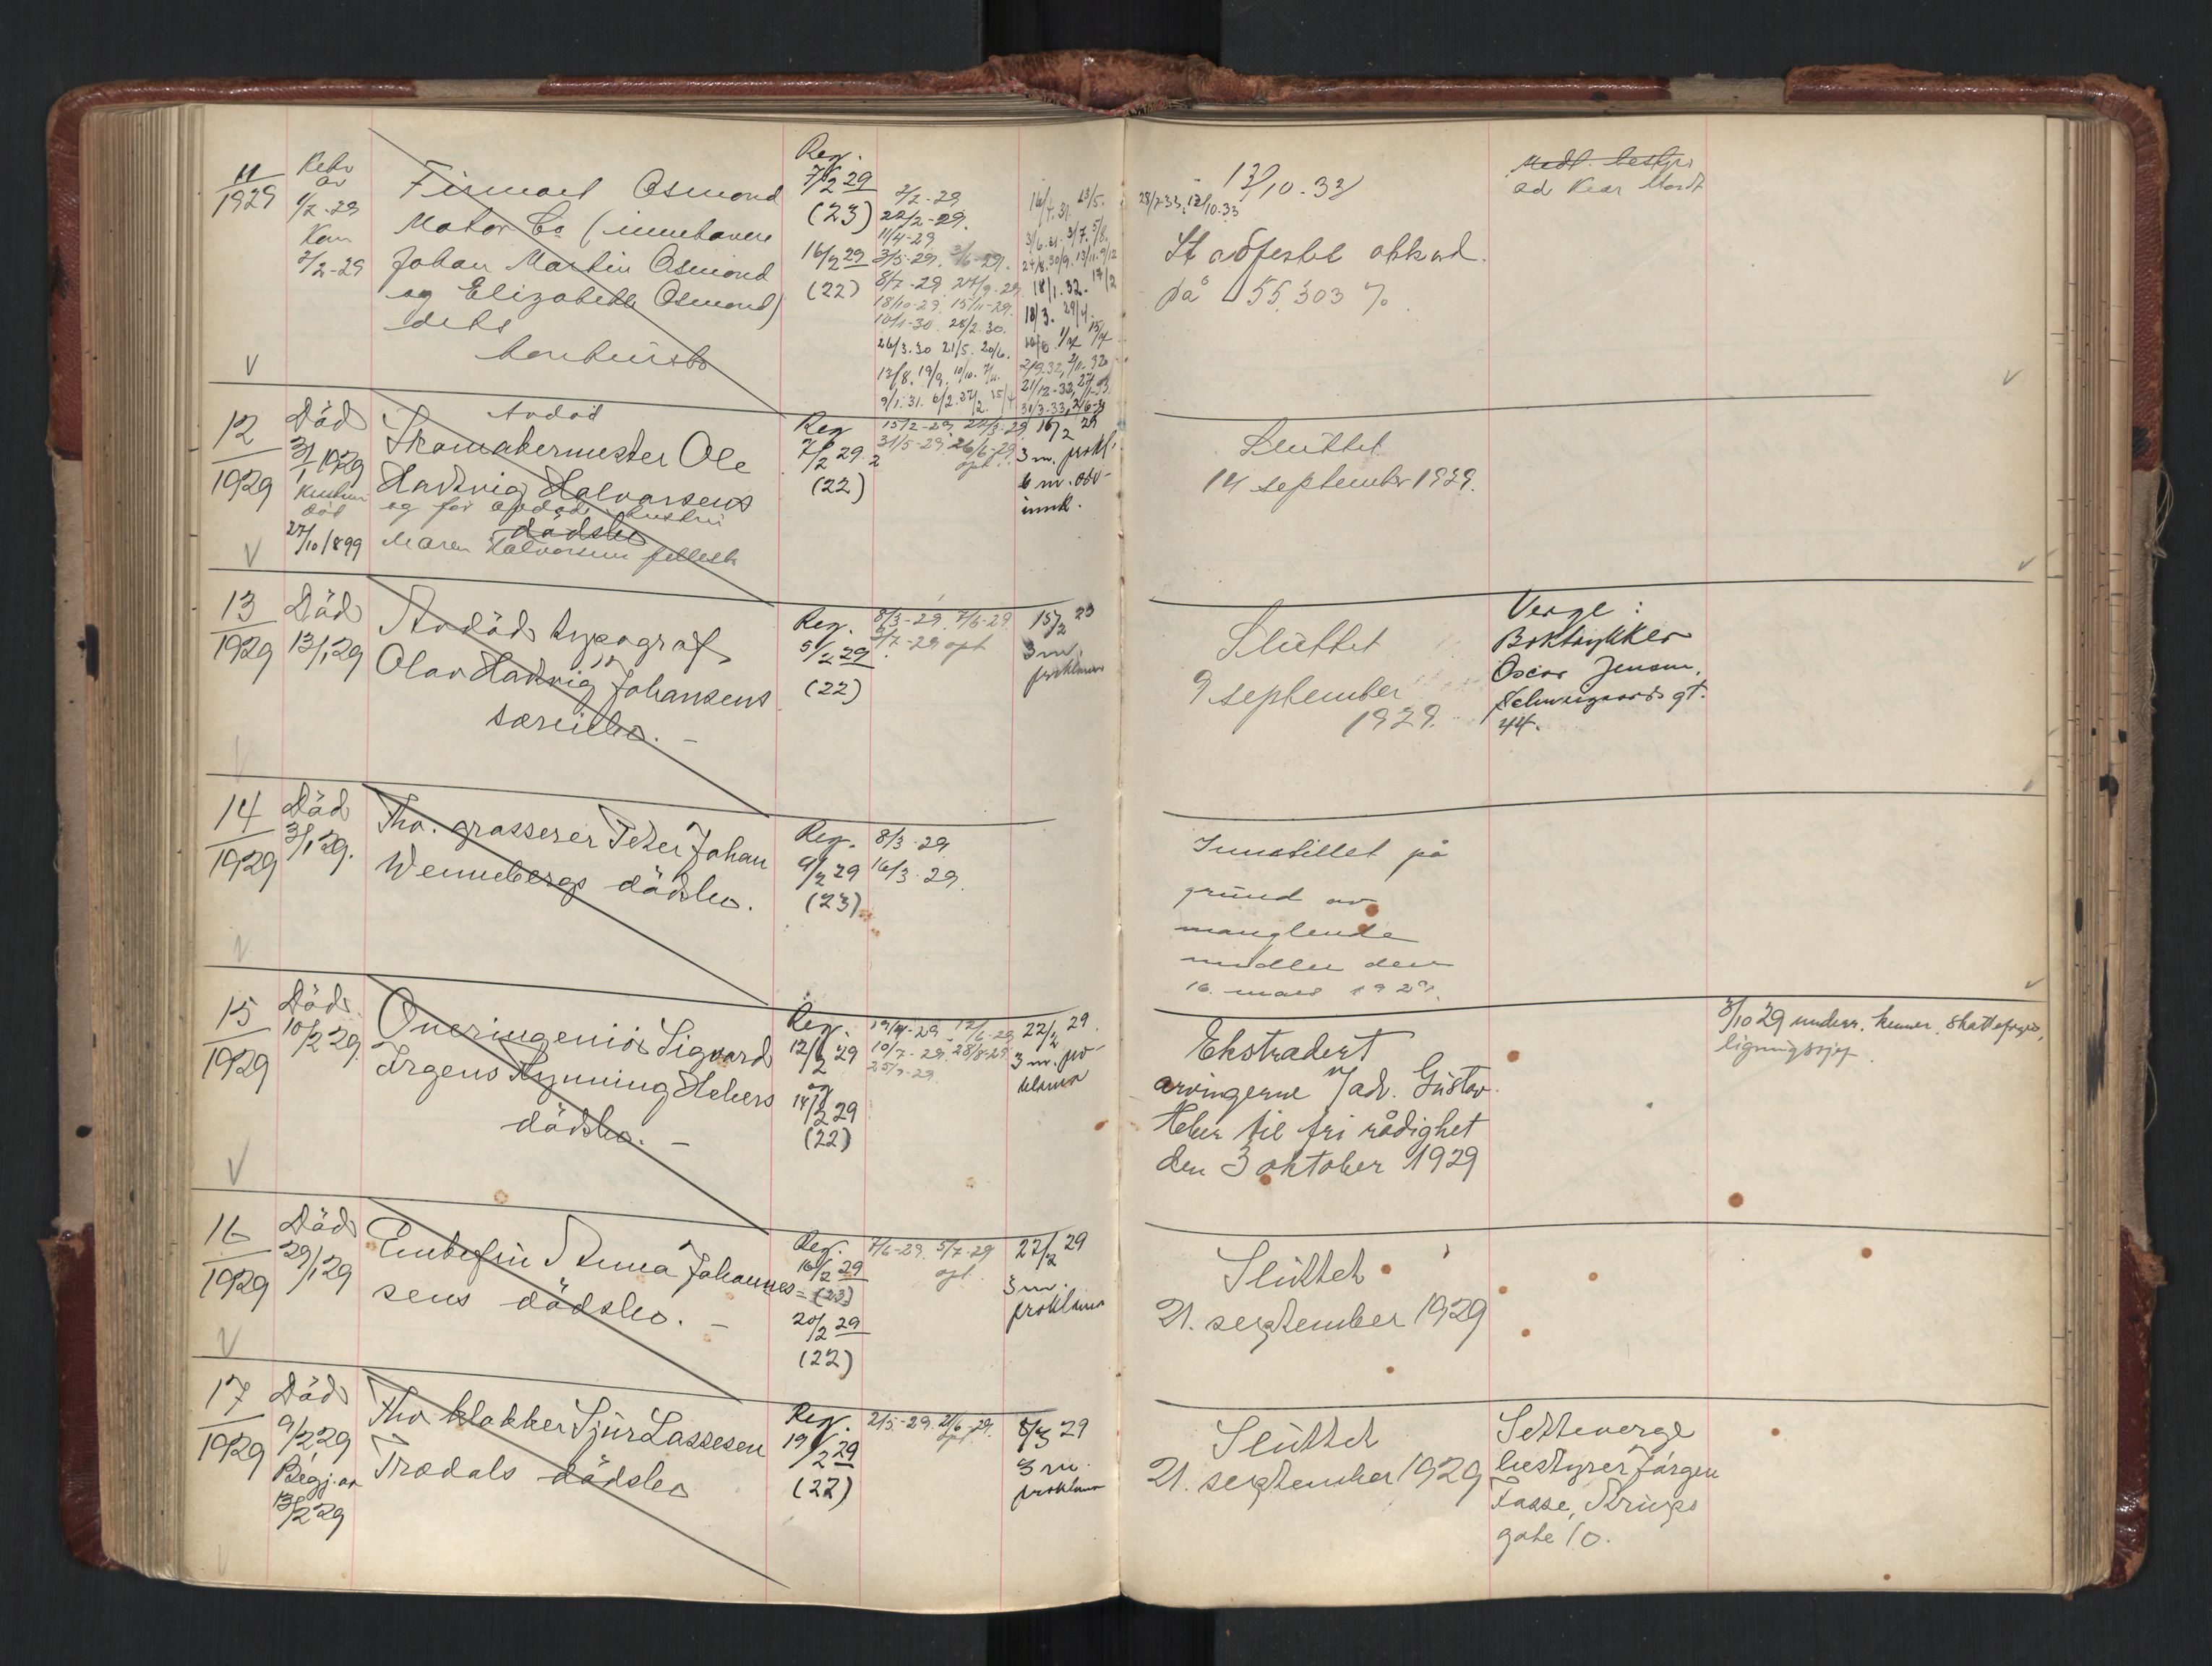 11
1929
av
1/2-29
Kon
7/2-29
Firmaet Osmond
Motor Co (innehavere
Johan Martin Osmond
og Elizabeth Osmond)
dets
konkursbo
Reg.
7/2 29
(23)
16/2 29
(22)
7/2-29
22/2-29.
11/4-29
3/5-29. 3/6-29.
8/7-29 24/9-29
18/10-29 15/11-29.
10/1-30. 28/2.30.
26/3.30 21/5. 20/6.
13/8. 19/9. 10/10. 7/11.
9/1.31. 6/2. 27/2. 15/4
16/4.31. 13/5.
3/6.31. 3/7. 5/8.
24/8. 30/9. 13/11. 9/12
18/1.32. 17/2
18/3. 29/4.
2/9.32, 2/11.32
21/12-32, 27/1-33.
31/3-33, 2/6-33
13/10-33
28/7-33, 12/10.33
St adfestet akkord.
på 55,303 %
12
1929
Död
3/1 1929
Kustru
död
27/10/1899
Avdöd
Skomakermester Ole
Hartvig Halvorsens
og før avdöde hustru
dödsbo
Maren Halvorsens fellesb
Reg
7/2 29.2
(22)
15/2-29. 22/3-29
31/5-29. 26/6-29
opt.
16/2 29
3 m. prokl.
6 m. obv-
innk.
Sluttet
14 september 1929.
13
1929
Död
13/1 29
Avdöd typograf
Olav Hartvig Johansens
særeiebo. –
Reg.
5/2 29
(22)
8/3-29. 7/6-29
5/7-29 opt
15/2 29
3 m.
proklama
Sluttet
9 september
1929.
Verge:
Boktrykker
Oscar Jensen,
Schweigaards gt.
44.
14
1929
Död
3/1 29.
Fhv. grosserer Peter Johan
Wennebergs dödsbo.
Reg.
9/2 29
(23)
8/3-29
16/3-29.
Innstillet på
grund av
manglende
midler den
16. mars 1929.
15
1929
Död
10/2 29
Overingeniör Sigvard
Irgens Rynning Hebers
dödsbo. –
Reg.
12/2 29
og
14/2 29
(22)
19/4-29. 12/6-29
10/7-29. 28/8-29
25/9-29.
22/2 29.
3 m. pro-
klama
Ekstradert
arvingerne v/adv. Gustav
Heber til fri rådighet
den 3 oktober 1929
3/10 29 underr. kemner, skattefogd,
ligningssjef.
16
1929
Död
29/1 29
Enkefru Anna Johannes=
sens dödsbo. –
Reg.
16/2 29
(23)
20/2 29
(22)
7/6-29. 5/7-29
opt.
22/2 29
3 m.
proklama
Sluttet
21. september 1929
17
1929
Död
9/2 29
Begj. av
13/2 29
Fhv. klokker Sjur Lassesen
Trædals dödsbo
Reg.
19/2 29
(22)
2/5-29. 21/6-29.
opt.
8/3 29
3 m.
proklama
Sluttet
21. september 1929
Setteverge
bestyrer Jörgen
Fasse, Krugs
gate 10.